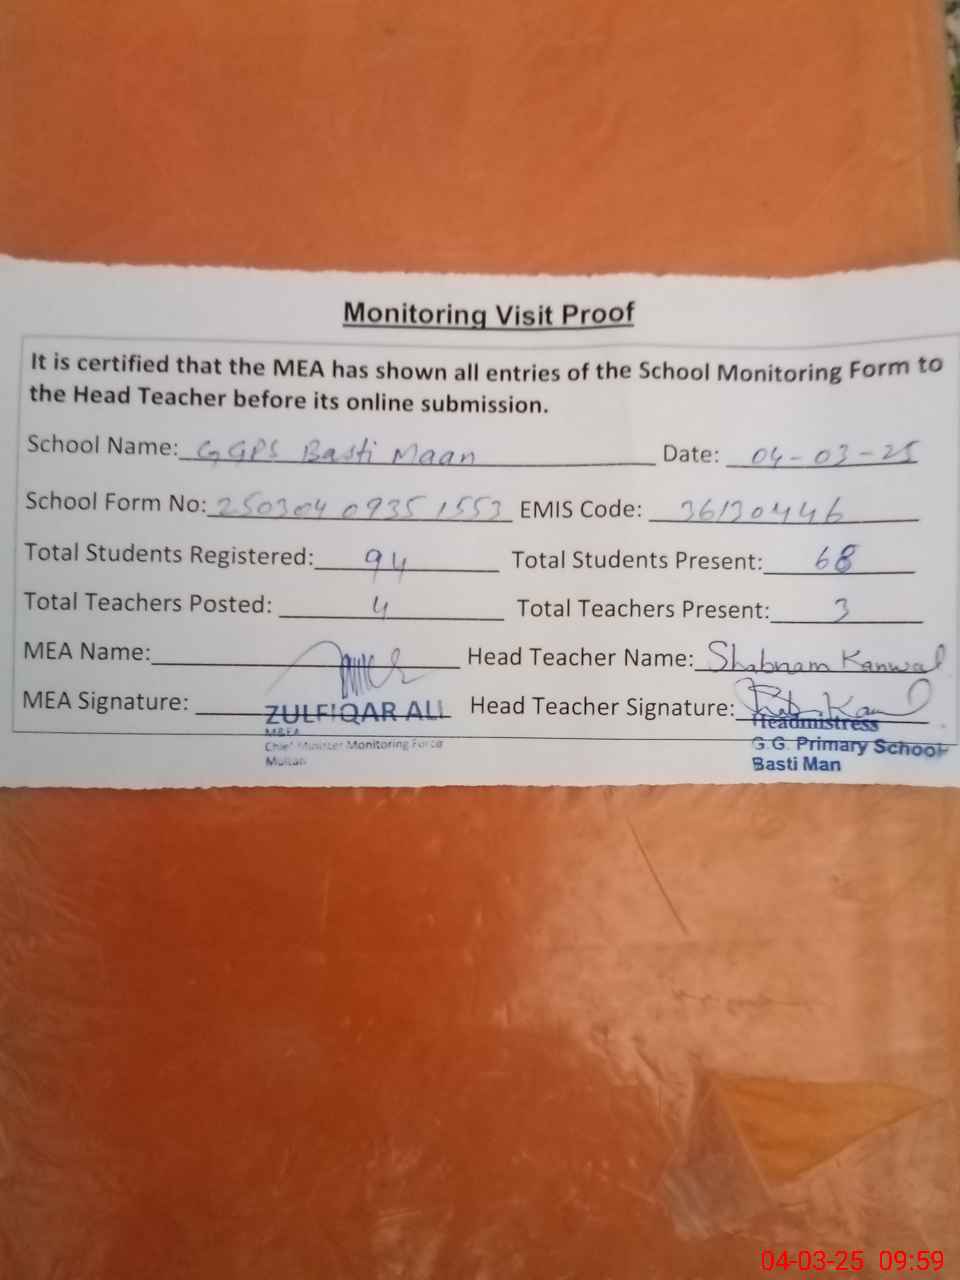 Monitoring Visit Proof
It is certified that the MEA has shown all entries of the School Monitoring Form to
the Head Teacher before its online submission.
School Name: GGPS Basti Maan Date: 04-03-25
School Form No: 250304 0935 1553 EMIS Code: 36130446
Total Students Registered: 94 Total Students Present: 68
Total Teachers Posted: 4 Total Teachers Present: 3
MEA Name: Head Teacher Name: Shabnam Kanwal
MEA Signature: Head Teacher Signature:
ZULFIQAR ALI
M&EA
Chief Minister Monitoring Force
Multan
Headmistress
G.G. Primary School
Basti Man
04-03-25 09:59